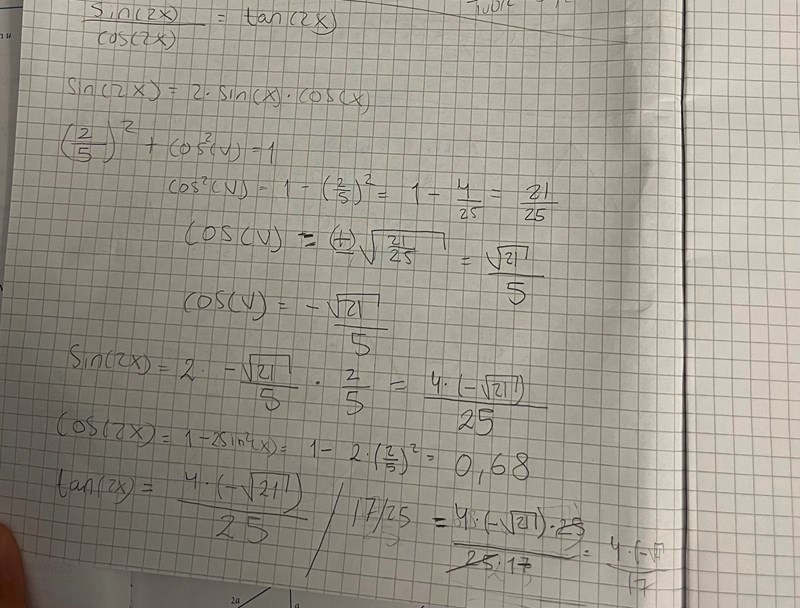 sin(2x)/cos(2x) = tan(2x)
sin(2x) = 2 · sin(x) · cos(x)
(2/5)² + cos²(v) = 1
cos²(v) = 1 - (2/5)² = 1 - 4/25 = 21/25
cos(v) = (±)√(21/25) = √21/5
cos(v) = -√21/5
sin(2x) = 2 · -√21/5 · 2/5 = 4·(-√21)/25
cos(2x) = 1-2sin²(x) = 1 - 2·(2/5)² = 0,68
tan(2x) = 4·(-√21)/25 / 17/25 = 4·(-√21)·25/25·17 = 4·(-√/17